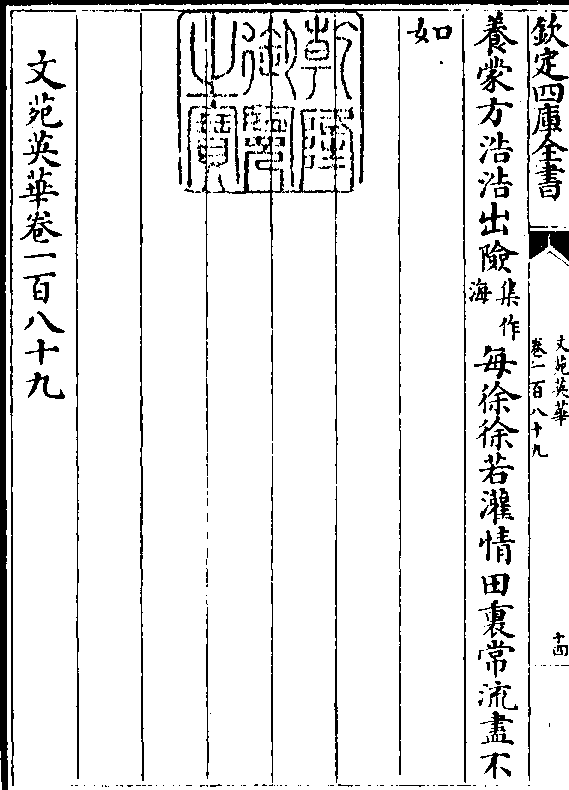 欽定四庫全書
文苑英華
卷一百八十九
十四
養蒙方浩浩出險集作海每徐徐若灌情田裏常流盡不
如
乾隆御覽之寶
文苑英華卷一百八十九